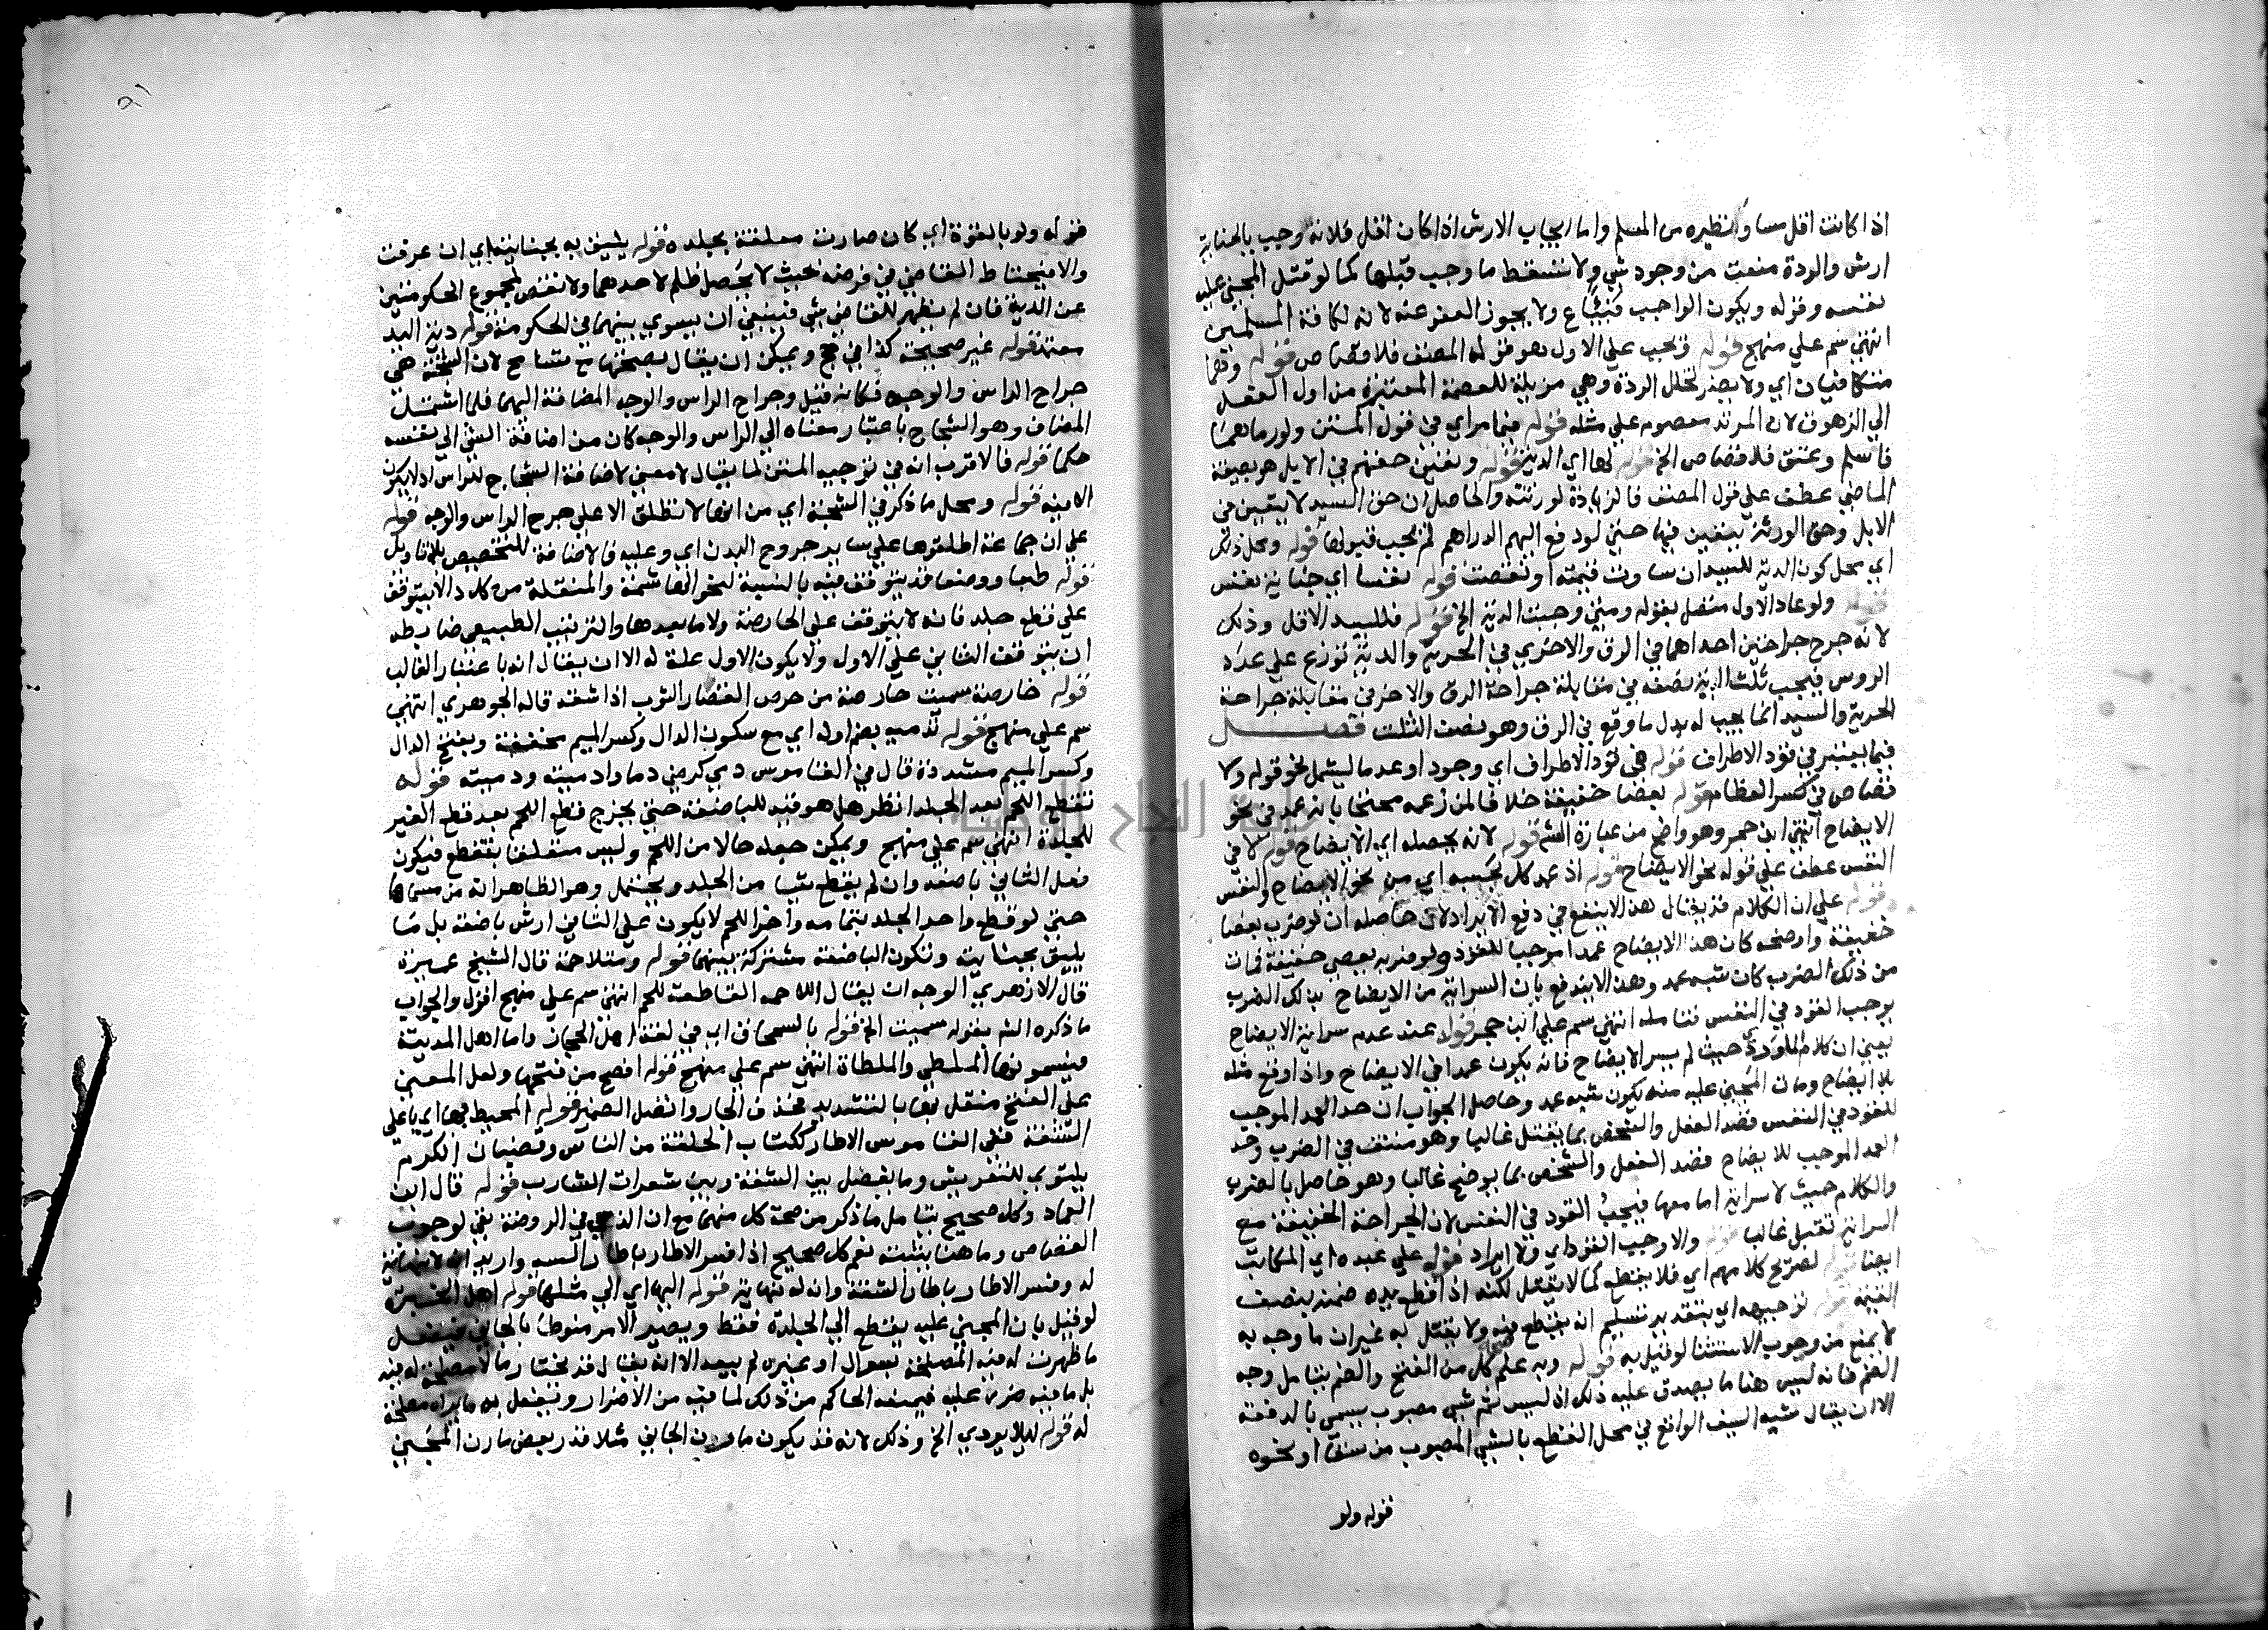 اذا كانت اقل مساواً نظيره من المسلم واما ايجاب الارش اذا كان اقل فلانه وجب بالجناية
ارش والردة منعت من وجود شي ولا تسقط ما وجب قبلها كما لو قتل المجني عليه
نفسه وقوله ويكون الواجب فيئا ع ولا يجوز العفو عنه لانه لكافة المسلمين
انتهى سم على منهج قوله وتجب على الاول هو قول المصنف فلا قصاص قوله وهما
متكافيان اي ولا يضر تخلل الردة وهي مزيلة للعصمة المعتبرة من اول الفعل
الى الزهوق لان المرتد معصوم على مثله قوله فيما مر اي في قول المتن ولو رماهما
فاسلم وعتق فلا قصاص الخ قوله لها اي الدية قوله وتعين حقهم في الابل هو بصيغة
الماضي عطف على قول المصنف فالزيادة لورثته والحاصل ان حق السيد لا يتعين في
الابل وحق الورثة يتعين فيها حتى لو دفع اليهم الدراهم لم يجب قبولها قوله ومحل ذلك
اي محل كون الدية للسيد ان ساوت قيمته او نقصت قوله نفسا اي جناية نفس
قوله ولو عاد الاول متصل بقوله ومتى وجبت الدية الخ قوله فللسيد الاقل وذلك
لانه جرح جراحتين احداهما في الرق والاخرى في الحرية والدية توزع على عدد
الروس فيجب ثلث الدية نصفه في مقابلة جراحة الرق والاخر في مقابلة جراحة
الحرية والسيد انما يجب له بدل ما وقع في الرق وهو نصف الثلث فصل
فيما يعتبر في قود الاطراف قوله في قود الاطراف اي وجودا وعدما ليشمل نحو قوله ولا
قصاص في كسر العظام قوله بعصا خفيفة خلافا لمن زعمه محتجا بانه عمد في نحو
الايضاح انتهى ابن حجر وهو واضح من عبارة الشم قوله لانه يحصله اي الايضاح قوله لا في
النفس عطف على قوله نحو الايضاح قوله اذ عمد كل بحسبه اي من نحو الايضاح والنفس
قوله على ان الكلام قد يقال هذا لا ينفع في دفع الايراد لان حاصله ان لو ضرب بعصا
خفيفة واوضحه كان هذا الايضاح عمدا موجبا للقود ولو ضربه بعصى خفيفة فمات
من ذلك الضرب كان شبه عمد وهذا لا يندفع بان السراية من الايضاح بذلك الضرب
يوجب القود في النفس فتامله انتهى سم على ابن حجر قوله عند عدم سراية الايضاح
يعني ان كلام الماوردي حيث لم يسر الايضاح فانه يكون عمدا في الايضاح واذا وقع مثله
بلا ايضاح ومات المجني عليه منه يكون شبه عمد وحاصل الجواب ان حد العمد الموجب
للقود في النفس قصد الفعل والشخص بما يقتل غالبا وهو منتف في الضرب وحد
العمد الموجب للايضاح قصد الفعل والشخص بما يوضح غالبا وهو حاصل بالضرب
والكلام حيث لا سراية اما معها فيجب القود في النفس لان الجراحة الخفيفة مع
السراية تقتل غالبا قوله والا وجب القود اي ولا ايراد قوله على عبده اي المكاتب
ايضا قوله لصريح كلامهم اي فلا يقطع كما لا يقتل لكنه اذا قطع يده ضمنه بنصف
القيمة قوله توجيهه اي بتقدير تسليم انه يقطع فيه ولا يقتل به غير ان ما وجه به
لا يمنع من وجوب الاستثنا لو قيل به قوله وبه علم كل من الفتح والضم يتامل وجه
الضم فانه ليس هنا ما يصدق عليه ذلك اذ ليس ثم شي مصبوب يسمى بالدفعة
الا ان يقال شبه السيف الواقع في محل القطع بالشي المصبوب من سقا او نحوه
قوله ولو
٩١
قوله ولو بالقوة اي كان صارت معلقة بجلده قوله يليق به بجنايته اي ان عرفت
والا فيحتاط القاضي في فرضه بحيث لا يحصل ظلم لاحدهما ولا نقص لمجموع الحكومتين
عن الدية فان لم يظهر للقاضي شي فينبغي ان يسوي بينهما في الحكومة قوله دية اليد
معتمد قوله غير صحيحة كذا في حج ويمكن ان يقال بصحتها مع تسامح لان الشجة هي
جراح الراس والوجه فكانه قيل وجراح الراس والوجه المضافة اليهما فلما اشتمل
المضاف وهو الشجاج باعتبار معناه الى الراس والوجه كان من اضافة الشي الى نفسه
حكما قوله فالاقرب انه في توجيه المتن لما يقال لا معنى لاضافة الشجاج للراس اذ لا يكون
الا فيه قوله ومحل ما ذكر في الشجة اي من انها لا تطلق الا على جرح الراس والوجه قوله
على ان جماعة اطلقوها على ساير جروح البدن اي وعليه فالاضافة للتخصيص بلا تاويل
قوله طبعا ووضعا قد يتوقف فيه بالنسبة لنحو الهاشمة والمنقلة من كل د لا يتوقف
على قطع جلد فانه لا يتوقف على الحارصة ولا ما بعدها والترتيب الطبيعي ضابطه
ان يتوقف الثاني على الاول ولا يكون الاول علة له الا ان يقال انه باعتبار الغالب
قوله خارصة سميت حارصة من حرص القصار الثوب اذا شقه قاله الجوهري انتهى
سم على منهج قوله تدميه بضم اوله اي مع سكون الدال وكسر الميم مخففة وبفتح الدال
وكسر الميم مشددة قال في القاموس دمي كرضي دما وادميته ودميته قوله
تقطع اللحم بعد الجلد انظر هل هو قيد للباضعة حتى يخرج قطع اللحم بعد قطع الغير
للجلدة انتهى سم على منهج ويمكن جعله حالا من اللحم وليس متعلقا بتقطع فيكون
فعل الثاني باضعة وان لم يقطع شيا من الجلد ويحتمل وهو الظاهر انه من مسماها
حتى لو قطع واحد الجلد بتمامه واخر اللحم لا يكون على الثاني ارش باضعة بل ما
يليق بجنايته وتكون الباضعة مشتركة بينهما قوله ومتلاحمة قال الشيخ عميرة
قال الازهري الوجه ان يقال اللاحمة القاطعة للحم انتهى سم على منهج اقول والجواب
ما ذكره الشم بقوله سميت الخ قوله بالسمحاق اي في لغة اهل الحجاز واما اهل المدينة
فيسمونها الملطى والملطاة انتهى سم على منهج قوله افصح من فتحها ولعل المعنى
على الفتح منتقل بها بالتشديد فحذف الجار واتصل الضمير قوله المحيط بها اي باعلى
الشفة ففي القاموس الاطار ككتاب الحلقة من الناس وقضبان الكرم
يلتوي للتعريش وما يفصل بين الشفة وبين شعرات الشارب قوله قال ابن
العماد وكل صحيح يتامل ما ذكر من صحة كل منهما مع ان الذي في الروضة نفي لوجوب
القصاص وما هنا يثبت نعم كل صحيح اذا فسر الاطار باطار السه واريد انه لا نهاية
له وفسر الاطار باطار الشفة وانه له نهاية قوله اليها اي الى مثلها قوله اهل الخبرة
لو قيل بان المجني عليه يقطع الى الجلدة فقط ويصير الامر منوطا بالجاني فيفعل
ما ظهرت له فيه المصلحة بسوال او غيره لم يبعد الا انه يقال قد يختار ما لا مصلحة له فيه
بل ما فيه ضرر عليه فيمنعه الحاكم من ذلك لما فيه من الاضرار ويفعل به ما يراه مصلحة
له قوله ليلا يودي الخ وذلك لانه قد يكون مارن الجاني مثلا قدر بعض مارن المجني